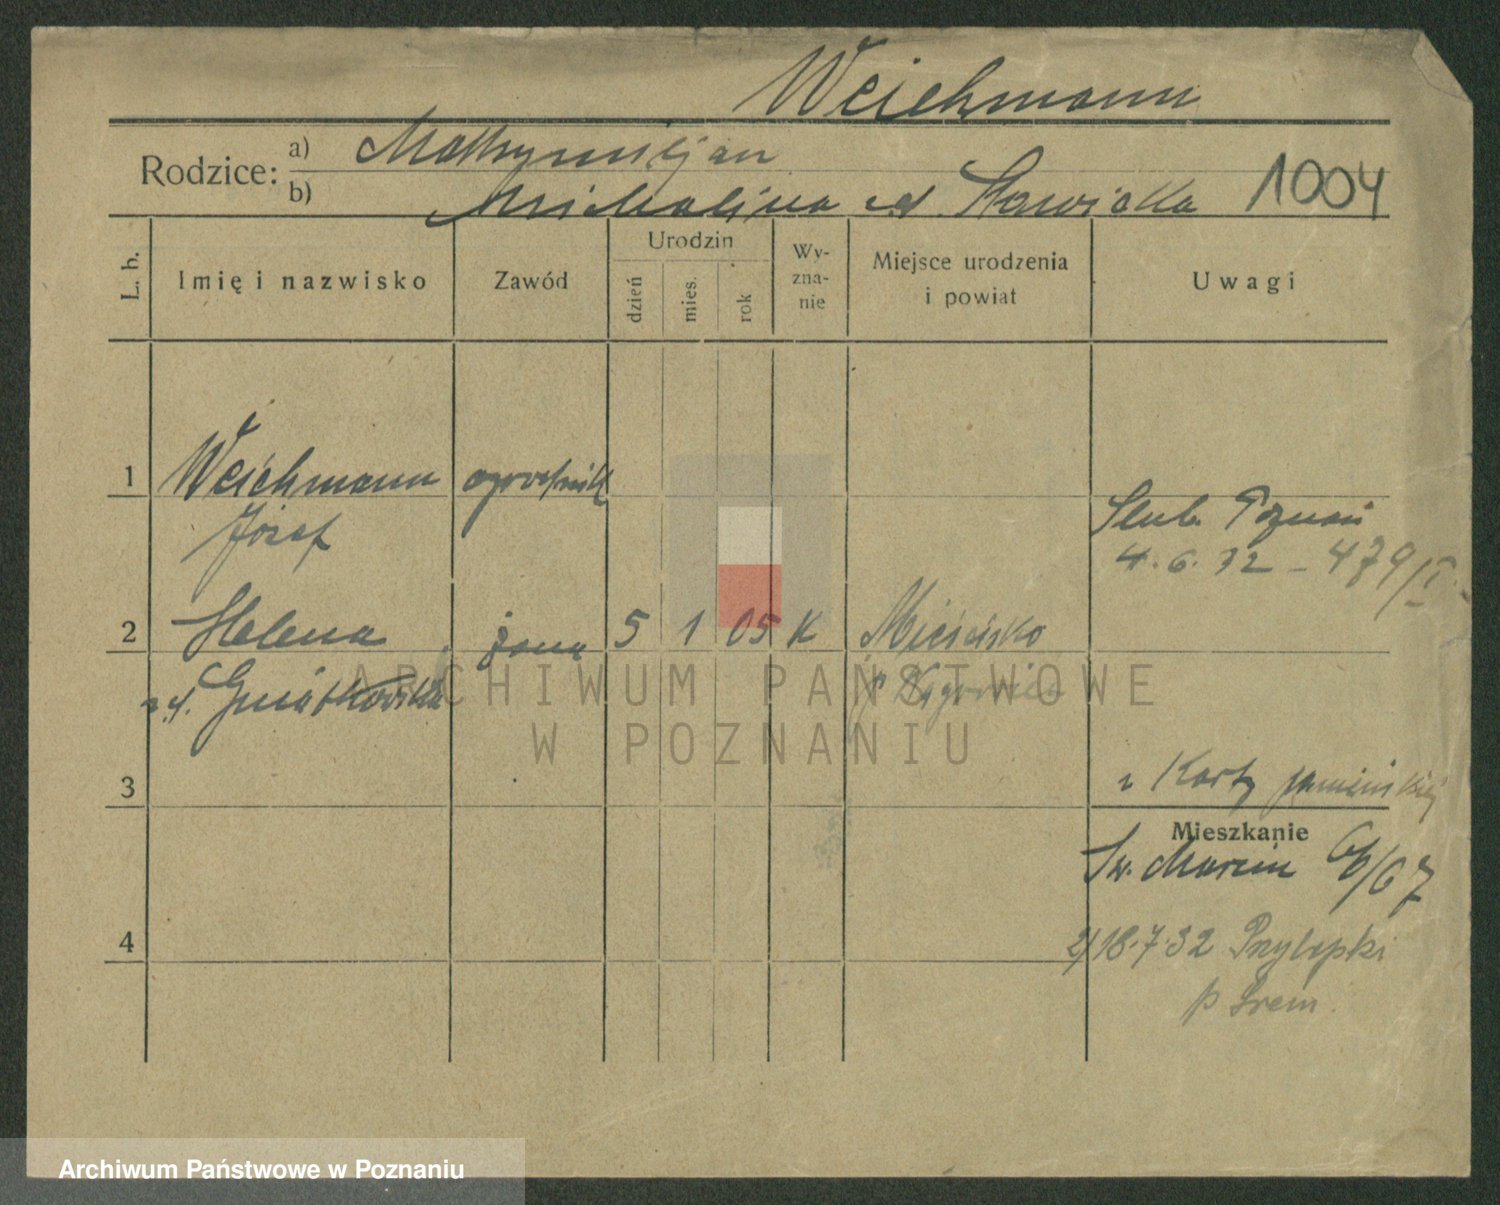 Weichmann
Rodzice: a) Maksymiljan
b) Michalina z d. Sławicka
1004
L. h. Imię i nazwisko Zawód Urodzin dzień mies. rok Wy-zna-nie Miejsce urodzenia i powiat Uwagi
1 Weichmann ogrodnik
Józef
Ślub. Poznań
4.6.32 - 479/I
2 Helena żona 5 1 05 K Mieścisko
z d. Gniatkowska p
ARCHIWUM PAŃSTWOWE
W POZNANIU
3 z Karty
Mieszkanie
Św. Marcin 66/67
4
2/18.7.32 Przylepki
p Śrem.
Archiwum Państwowe w Poznaniu